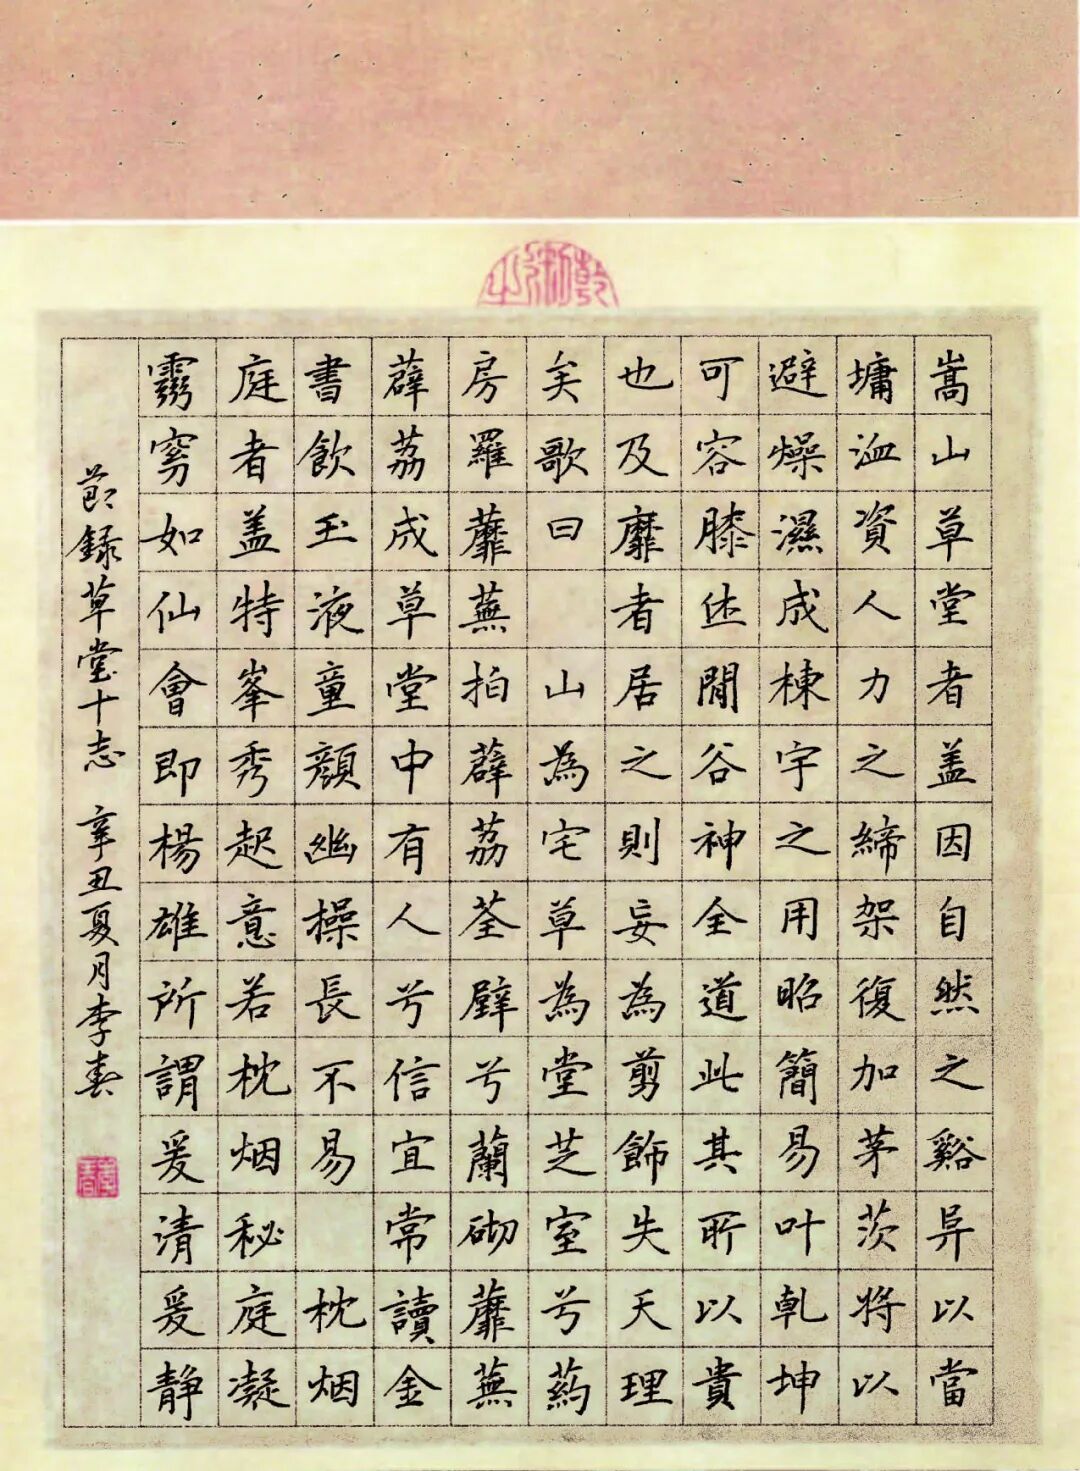 嵩山草堂者盖因自然之谿阜以當
墉洫資人力之締架復加茅茨將以
避燥濕成棟宇之用昭簡易叶乹坤
可容膝休閒谷神全道此其所以貴
也及靡者居之則妄為剪飾失天理
矣歌曰 山為宅草為堂芝室兮葯
房羅蘼蕪拍薜荔荃壁兮蘭砌蘼蕪
薜荔成草堂中有人兮信宜常讀金
書飲玉液童顏幽操長不易 枕烟
庭者盖特峯秀起意若枕烟秘庭凝
靈窈如仙會即楊雄所謂爰清爰静
節録草堂十志 辛丑夏月李春
李春